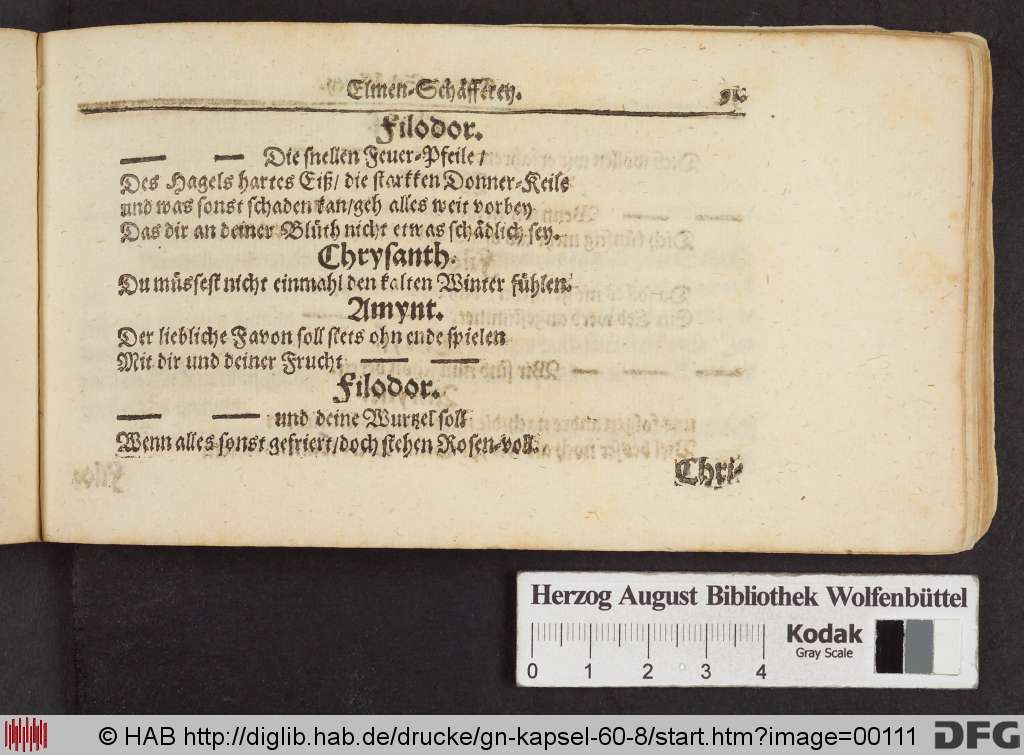 Elmen-Schäfferey.
Filodor.
— — Die snellen Feuer-Pfeile/
Des Hagels hartes Eiß/ die starkken Donner-Keile
und was sonst schaden kan/geh alles weit vorbey
Das dir an deiner Blüth nicht etwas schädlich sey.
Chrysanth.
Du müssest nicht einmahl den kalten Winter fühlen.
Amynt.
Der liebliche Favon soll stets ohn ende spielen
Mit dir und deiner Frucht — —
Filodor.
— — und deine Wurtzel soll
Wenn alles sonst gefriert/doch stehen Rosen-voll.
Chri-
Herzog August Bibliothek Wolfenbüttel
Kodak
Gray Scale
0 1 2 3 4
© HAB http://diglib.hab.de/drucke/gn-kapsel-60-8/start.htm?image=00111
DFG